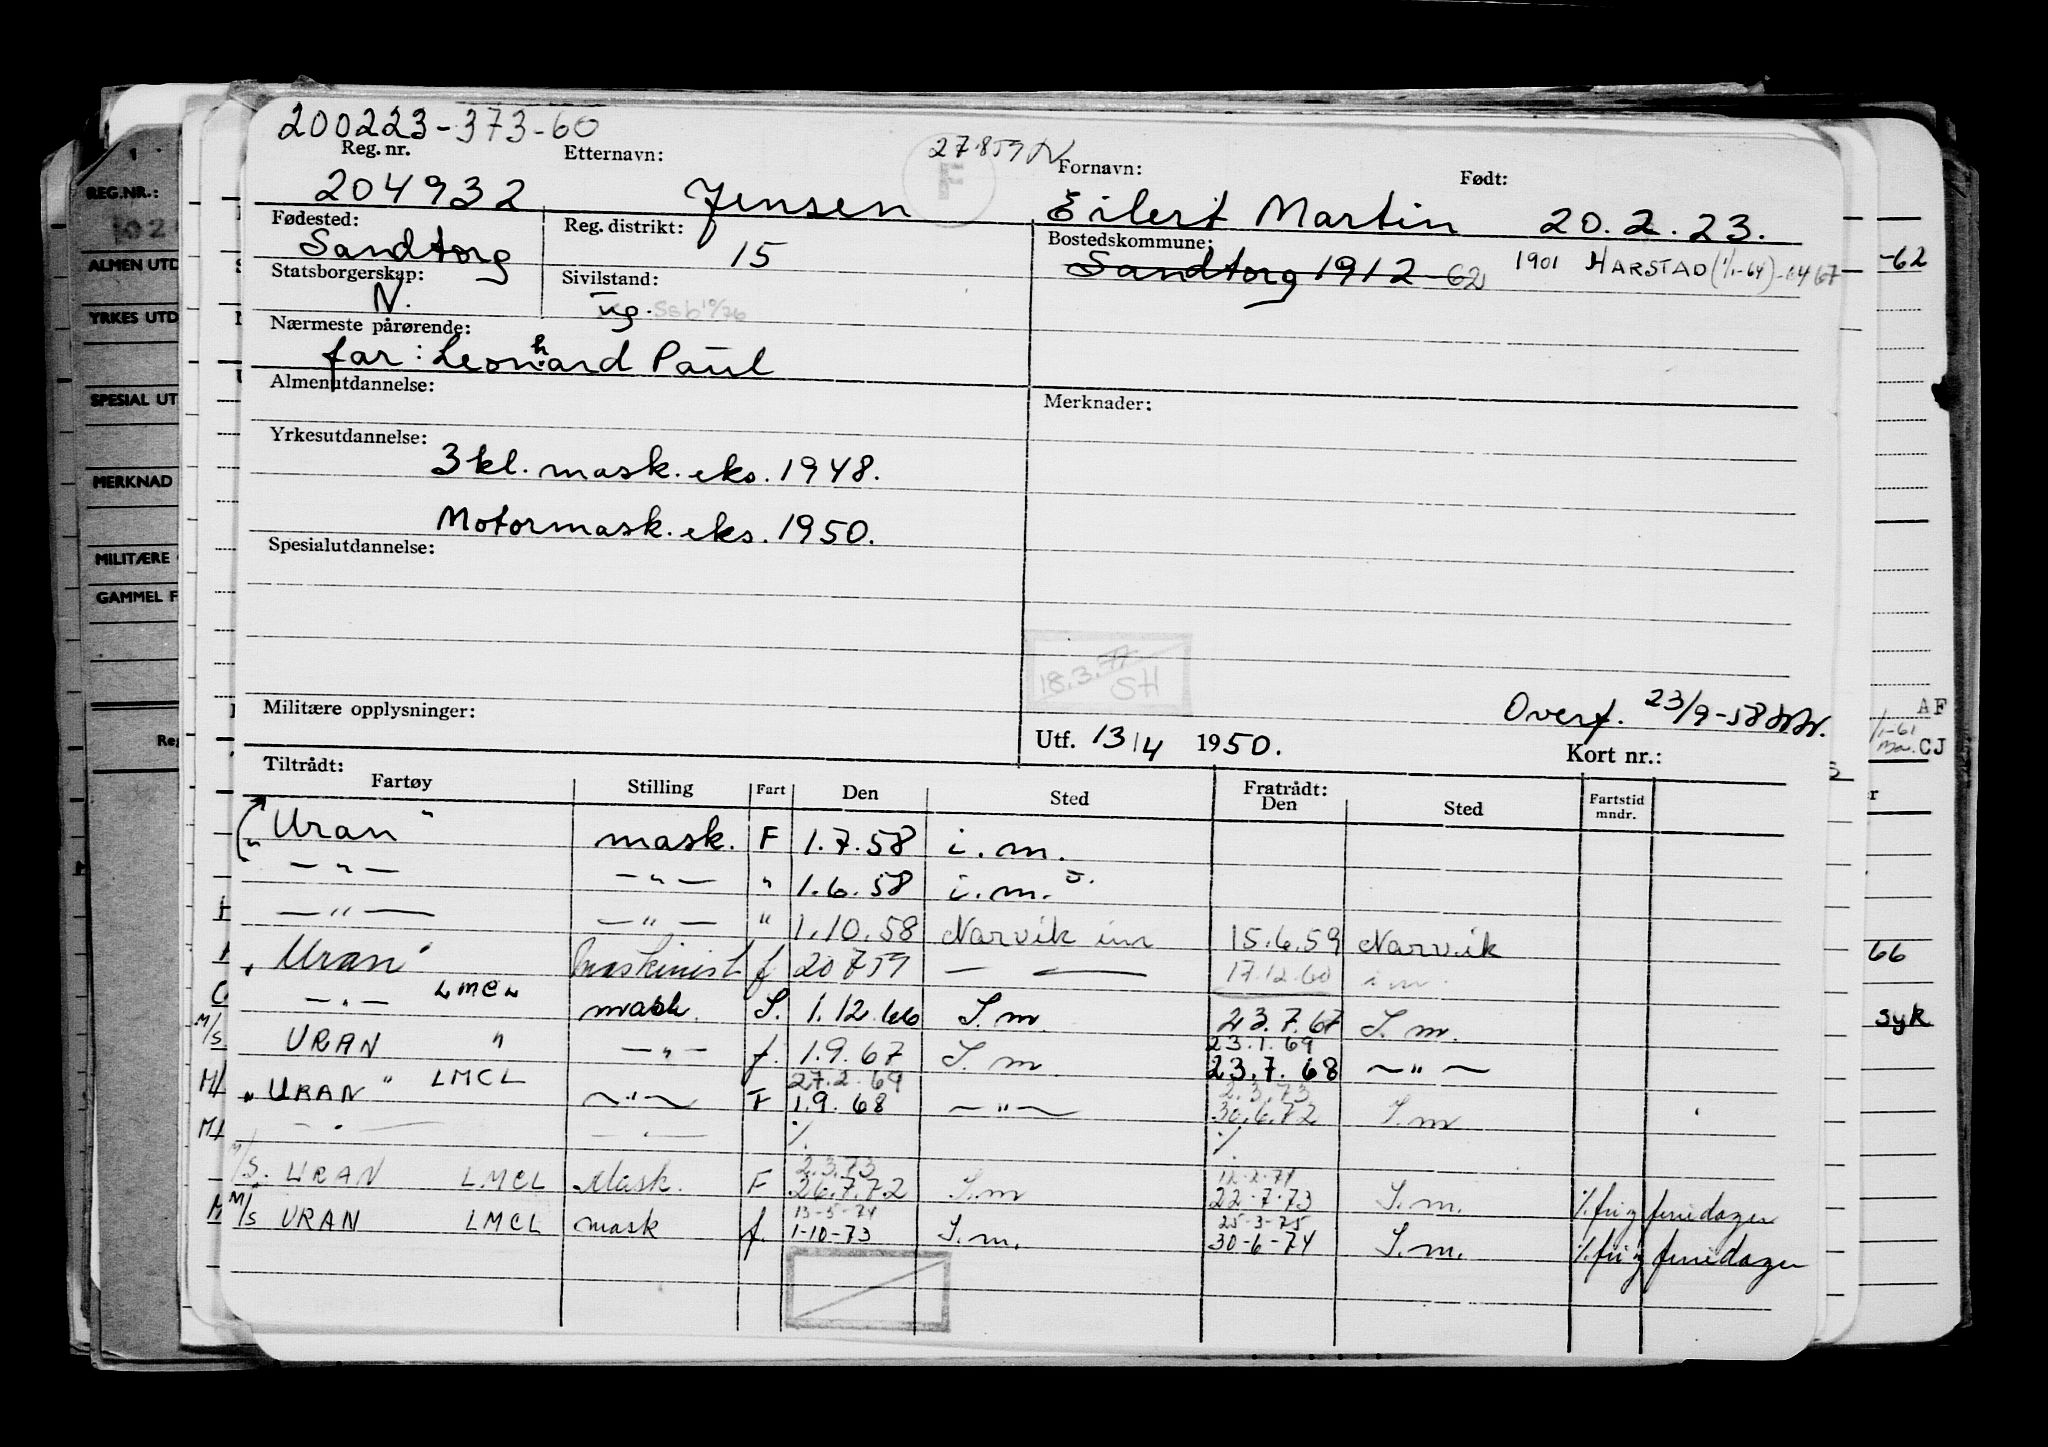 200223-373-60
Reg. nr. Etternavn: 27.8 59 Fornavn: Født:
204932 Jensen F Eilert Martin 20.2.23.
Fødested: Reg. distrikt: Bostedskommune:
Sandtorg 15 Sandtorg 1912-62 1901 HARSTAD (1/1-64)
Statsborgerskap: Sivilstand:
N. ug.
Nærmeste pårørende:
far: Leonhard Paul
Almenutdannelse: Merknader:
Yrkesutdannelse:
3kl. mask. eks. 1948.
Motormask. eks. 1950.
Spesialutdannelse:
18.3.77
SH
Militære opplysninger: Overf. 23/9-58
Utf. 13/4 1950. Kort nr.:
Tiltrådt: Fratrådt:
Fartøy Stilling Fart Den Sted Den Sted Fartstid mndr.
"Uran" mask. F 1.7.58 i.m.
—"— —"— " 1.6.58 i.m.
—"— —"— " 1.10.58 Narvik im 15.6.59 Narvik
"Uran" Maskinist f 20 7 59 — — 17.12.60 i m.
—"— LMCL mask. S. 1.12.66 S.m. 23.7.67 S.m.
23.1.69
M/S URAN " —"— f. 1.9.67 S.m. 23.7.68 —"—
27.2.69 2.3.73
M/ "URAN" LMCL —"— F 1.9.68 —"— 30.6.72 S.m
—"— —"— % %
2.3.73 12-2-74
M/S. URAN LMCL Mask. F 26.7.72 S.m 22-7-73 S.m. %. fri g feriedager
13-5-74 25-3-75
M/S URAN LMCL mask f. 1-10-73 S.m. 30-6-74 S.m. %. fri g feriedager
REG.NR.:
ALMEN UTD
YRKES UTD
SPESIAL UT
MERKNAD
MILITÆRE
GAMMEL F
Reg
-62
AF
1/1-61
CJ
66
syk